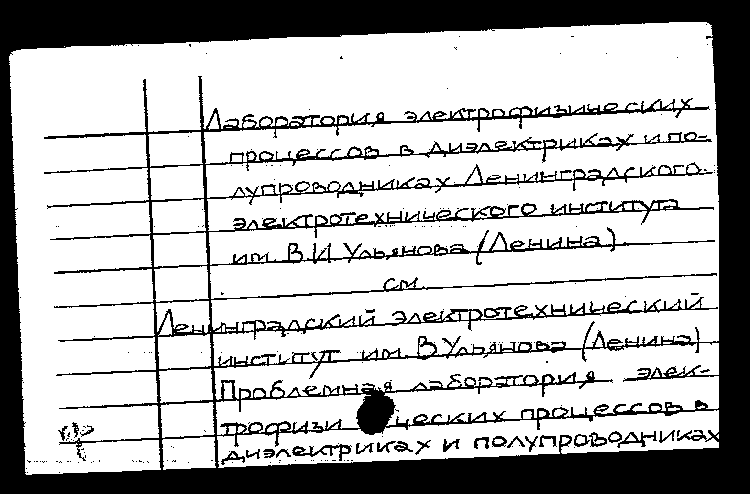 Лаборатория электрофизических
процессов в диэлектриках и по-
лупроводниках Ленинградского
электротехнического института
им. В.И. Ульянова (Ленина).
см.
Ленинградский электротехнический
институт им. В Ульянова (Ленина)
Проблемная лаборатория элек-
трофизи ческих процессов в
диэлектриках и полупроводниках